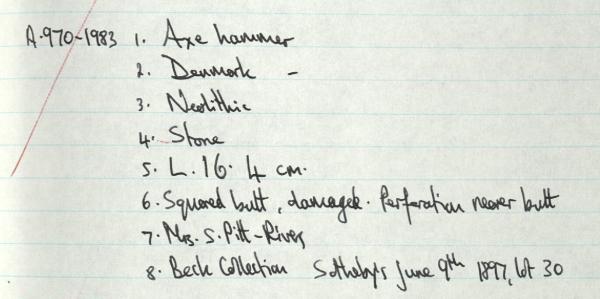 A.970-1983 1. Axe hammer
2. Denmark -
3. Neolithic
4. Stone
5. L. 16.4 cm.
6. Squared butt, damaged. Perforation nearer butt
7. Mrs. S. Pitt-Rivers
8. Beck Collection Sotheby's June 9th 1897, lot 30